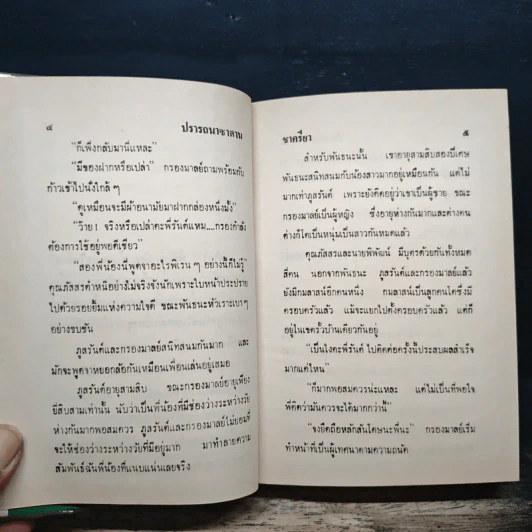 ๔
ปรารถนาซาตาน
“ก็เพิ่งกลับมานี่แหละ”
“มีของฝากหรือเปล่า” กรองมาลย์ถามพร้อมกับ
ก้าวเข้าไปนั่งใกล้ ๆ
“ดูเหมือนจะมีผ้าอนามัยมาฝากกล่องหนึ่งมั้ง”
“ว๊าย! จริงหรือเปล่าคะพี่รันค์แหม....กรองกำลัง
ต้องการใช้อยู่พอดีเชียว”
“สองพี่น้องนี่พูดจาอะไรพิเรน ๆ อย่างนี้ก็ไม่รู้
คุณภัสสรค่ำหนืออย่างไม่จริงจังนักเพราะใบหน้าประปราย
ไปด้วยรอยยิ้มแห่งความใจดี ขณะพันธนะหัวเราะเบา ๆ
อย่างขบขัน
ภูสรันค์และกรองมาลย์สนิทสนมกันมาก และ
มักจะพูดจาหยอกล้อกันเหมือนเพื่อนเล่นอยู่เสมอ
ภูสรันค์อายุสามสิบ ขณะกรองมาลย์อายุเพียง
ยี่สิบสามเท่านั้น นับว่าเป็นพี่น้องที่มีช่องว่างระหว่างวัย
ห่างกันมากพอสมควร ภูสรันค์และกรองมาลย์ไม่ยอมที่
จะให้ช่องว่างระหว่างวัยที่มีอยู่มาก มาทำลายความ
สัมพันธ์ฉันพี่น้องที่แนบแน่นเลยจริง
ชาครียา
๕
สำหรับพันธนะนั้น เขาอายุสามสิบสองปีเศษ
พันธนะสนิทสนมกับน้องสาวมากอยู่เหมือนกัน แต่ไม่
มากเท่าภูสรันค์ เพราะยังคิดอยู่ว่าเขาเป็นผู้ชาย ขณะ
กรองมาลย์เป็นผู้หญิง ซึ่งอายุห่างกันมากและต่างคน
ต่างก็โตเป็นหนุ่มเป็นสาวกันหมดแล้ว
คุณภัสสรและนายพิพัฒน์ มีบุตรด้วยกันทั้งหมด
สี่คน นอกจากพันธนะ ภูสรันค์และกรองมาลย์แล้ว
ยังมีกมลาสน์อีกคนหนึ่ง กมลาสน์เป็นลูกคนโตซึ่งมี
ครอบครัวแล้ว แม้จะแยกไปตั้งครอบครัวแล้ว แต่ก็
อยู่ในเขตรั้วบ้านเดียวกันอยู่
“เป็นไงคะพี่รันค์ ไปติดต่อครั้งนี้ประสบผลสำเร็จ
มากแค่ไหน”
“ก็มากพอสมควรน่ะแหละ แต่ไม่เป็นที่พอใจ
พี่คิดว่ามันควรจะได้มากกว่านี้”
“จงยึดถือหลักสันโดษนะพี่นะ” กรองมาลย์เริ่ม
ทำหน้าที่เป็นผู้เทศนาตามความถนัด